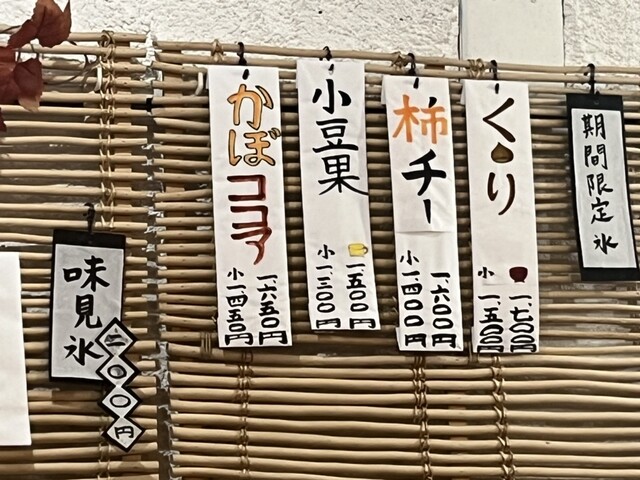 期間限定氷
くり
一七〇〇円
小一、五〇〇円
柿チー
一六〇〇円
小一四〇〇円
小豆果
一五〇〇円
小一、三〇〇円
かぼココア
一六五〇円
小一四五〇円
味見氷
二〇〇円